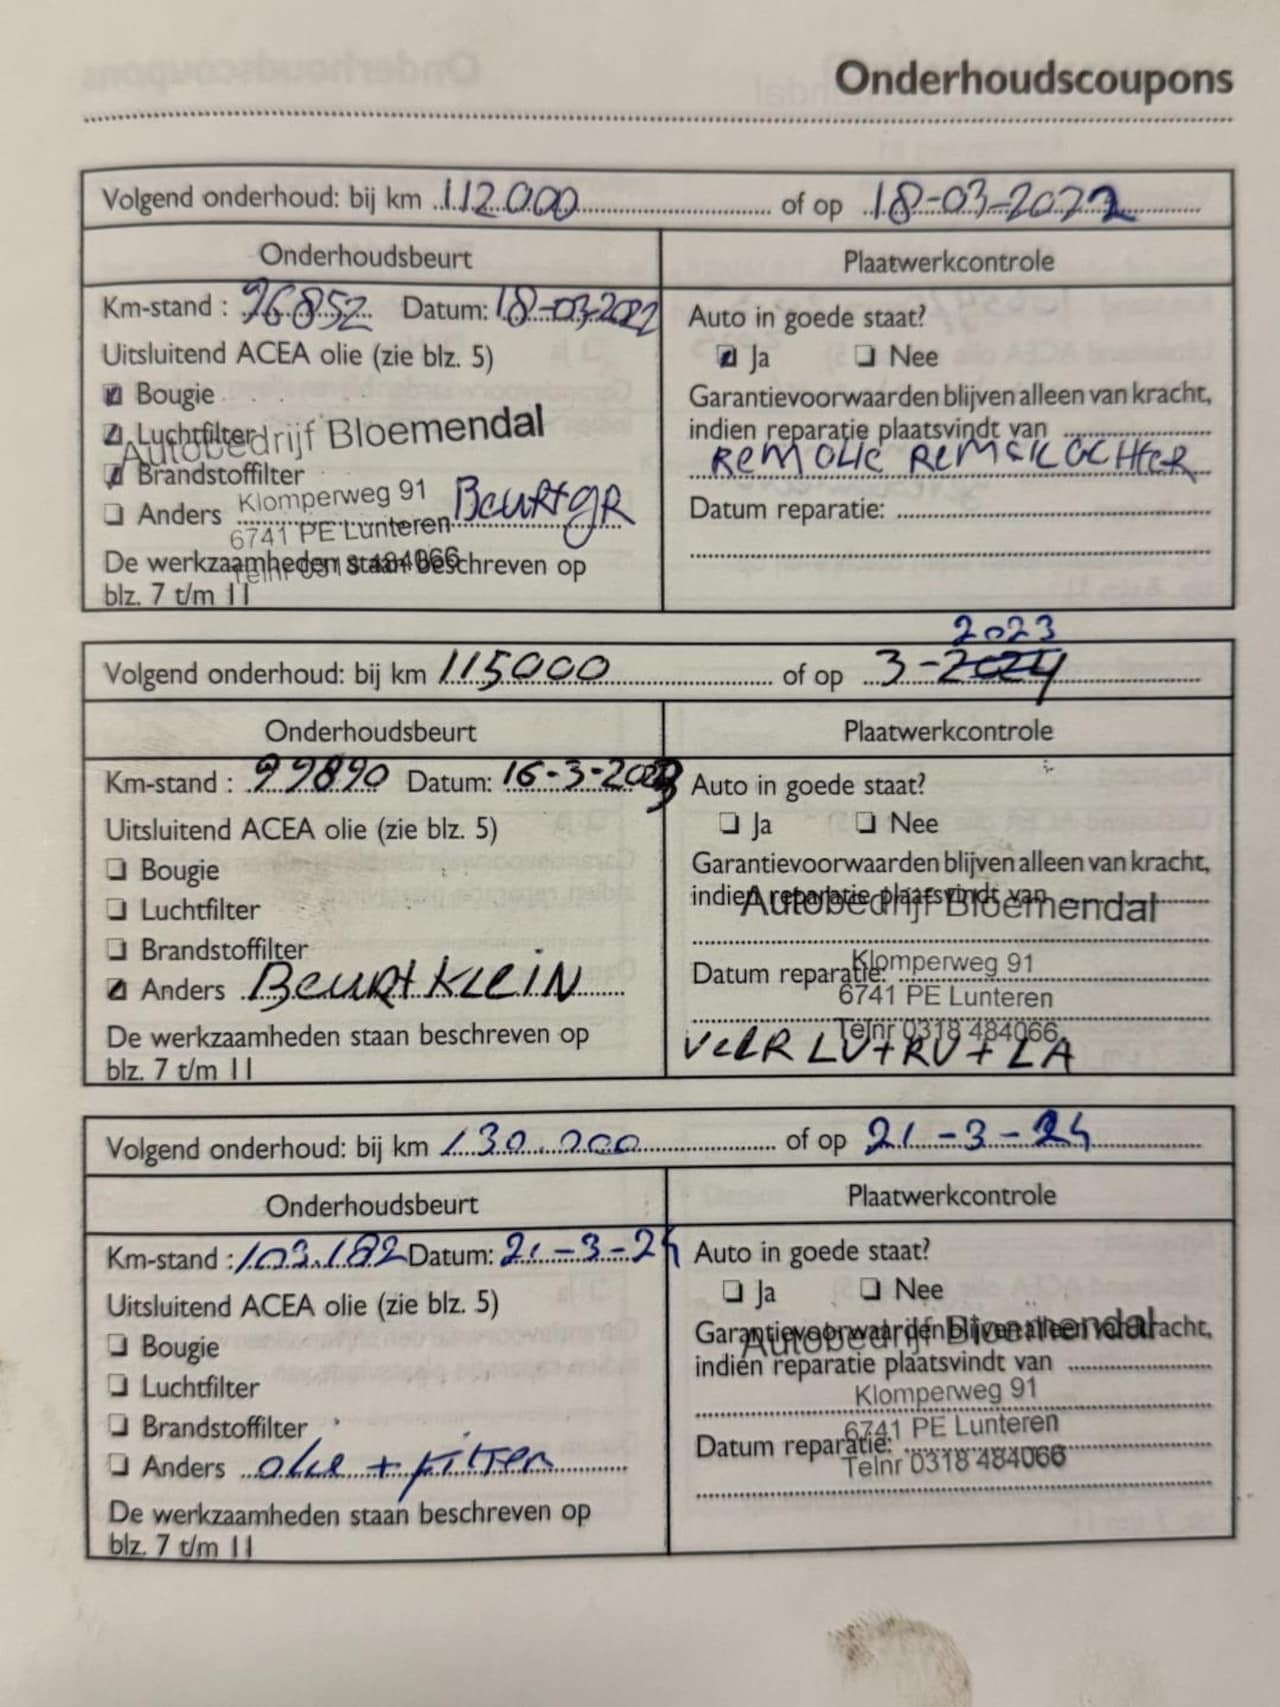 Onderhoudscoupons
Volgend onderhoud: bij km 112.000 of op 18-03-2022
Onderhoudsbeurt
Km-stand : 96852 Datum: 18-03-2022
Uitsluitend ACEA olie (zie blz. 5)
Bougie
Luchtfilter
Brandstoffilter
Anders Beurt gR
De werkzaamheden staan beschreven op
blz. 7 t/m 11
Autobedrijf Bloemendal
Klomperweg 91
6741 PE Lunteren
Telnr 0318 484066
Plaatwerkcontrole
Auto in goede staat?
Ja Nee
Garantievoorwaarden blijven alleen van kracht,
indien reparatie plaatsvindt van
Rem olie Remblok achter
Datum reparatie:
2023
Volgend onderhoud: bij km 115000 of op 3-2024
Onderhoudsbeurt
Km-stand : 99890 Datum: 16-3-2023
Uitsluitend ACEA olie (zie blz. 5)
Bougie
Luchtfilter
Brandstoffilter
Anders Beurt KLEIN
De werkzaamheden staan beschreven op
blz. 7 t/m 11
Plaatwerkcontrole
Auto in goede staat?
Ja Nee
Garantievoorwaarden blijven alleen van kracht,
indien reparatie plaatsvindt van
Autobedrijf Bloemendal
Klomperweg 91
Datum reparatie:
6741 PE Lunteren
Telnr 0318 484066
VEER LV+RV+LA
Volgend onderhoud: bij km 130.000 of op 21-3-24
Onderhoudsbeurt
Km-stand : 103.182 Datum: 21-3-24
Uitsluitend ACEA olie (zie blz. 5)
Bougie
Luchtfilter
Brandstoffilter
Anders olie + filter
De werkzaamheden staan beschreven op
blz. 7 t/m 11
Plaatwerkcontrole
Auto in goede staat?
Ja Nee
Garantievoorwaarden blijven alleen van kracht,
Autobedrijf Bloemendal
indien reparatie plaatsvindt van
Klomperweg 91
6741 PE Lunteren
Datum reparatie:
Telnr 0318 484066